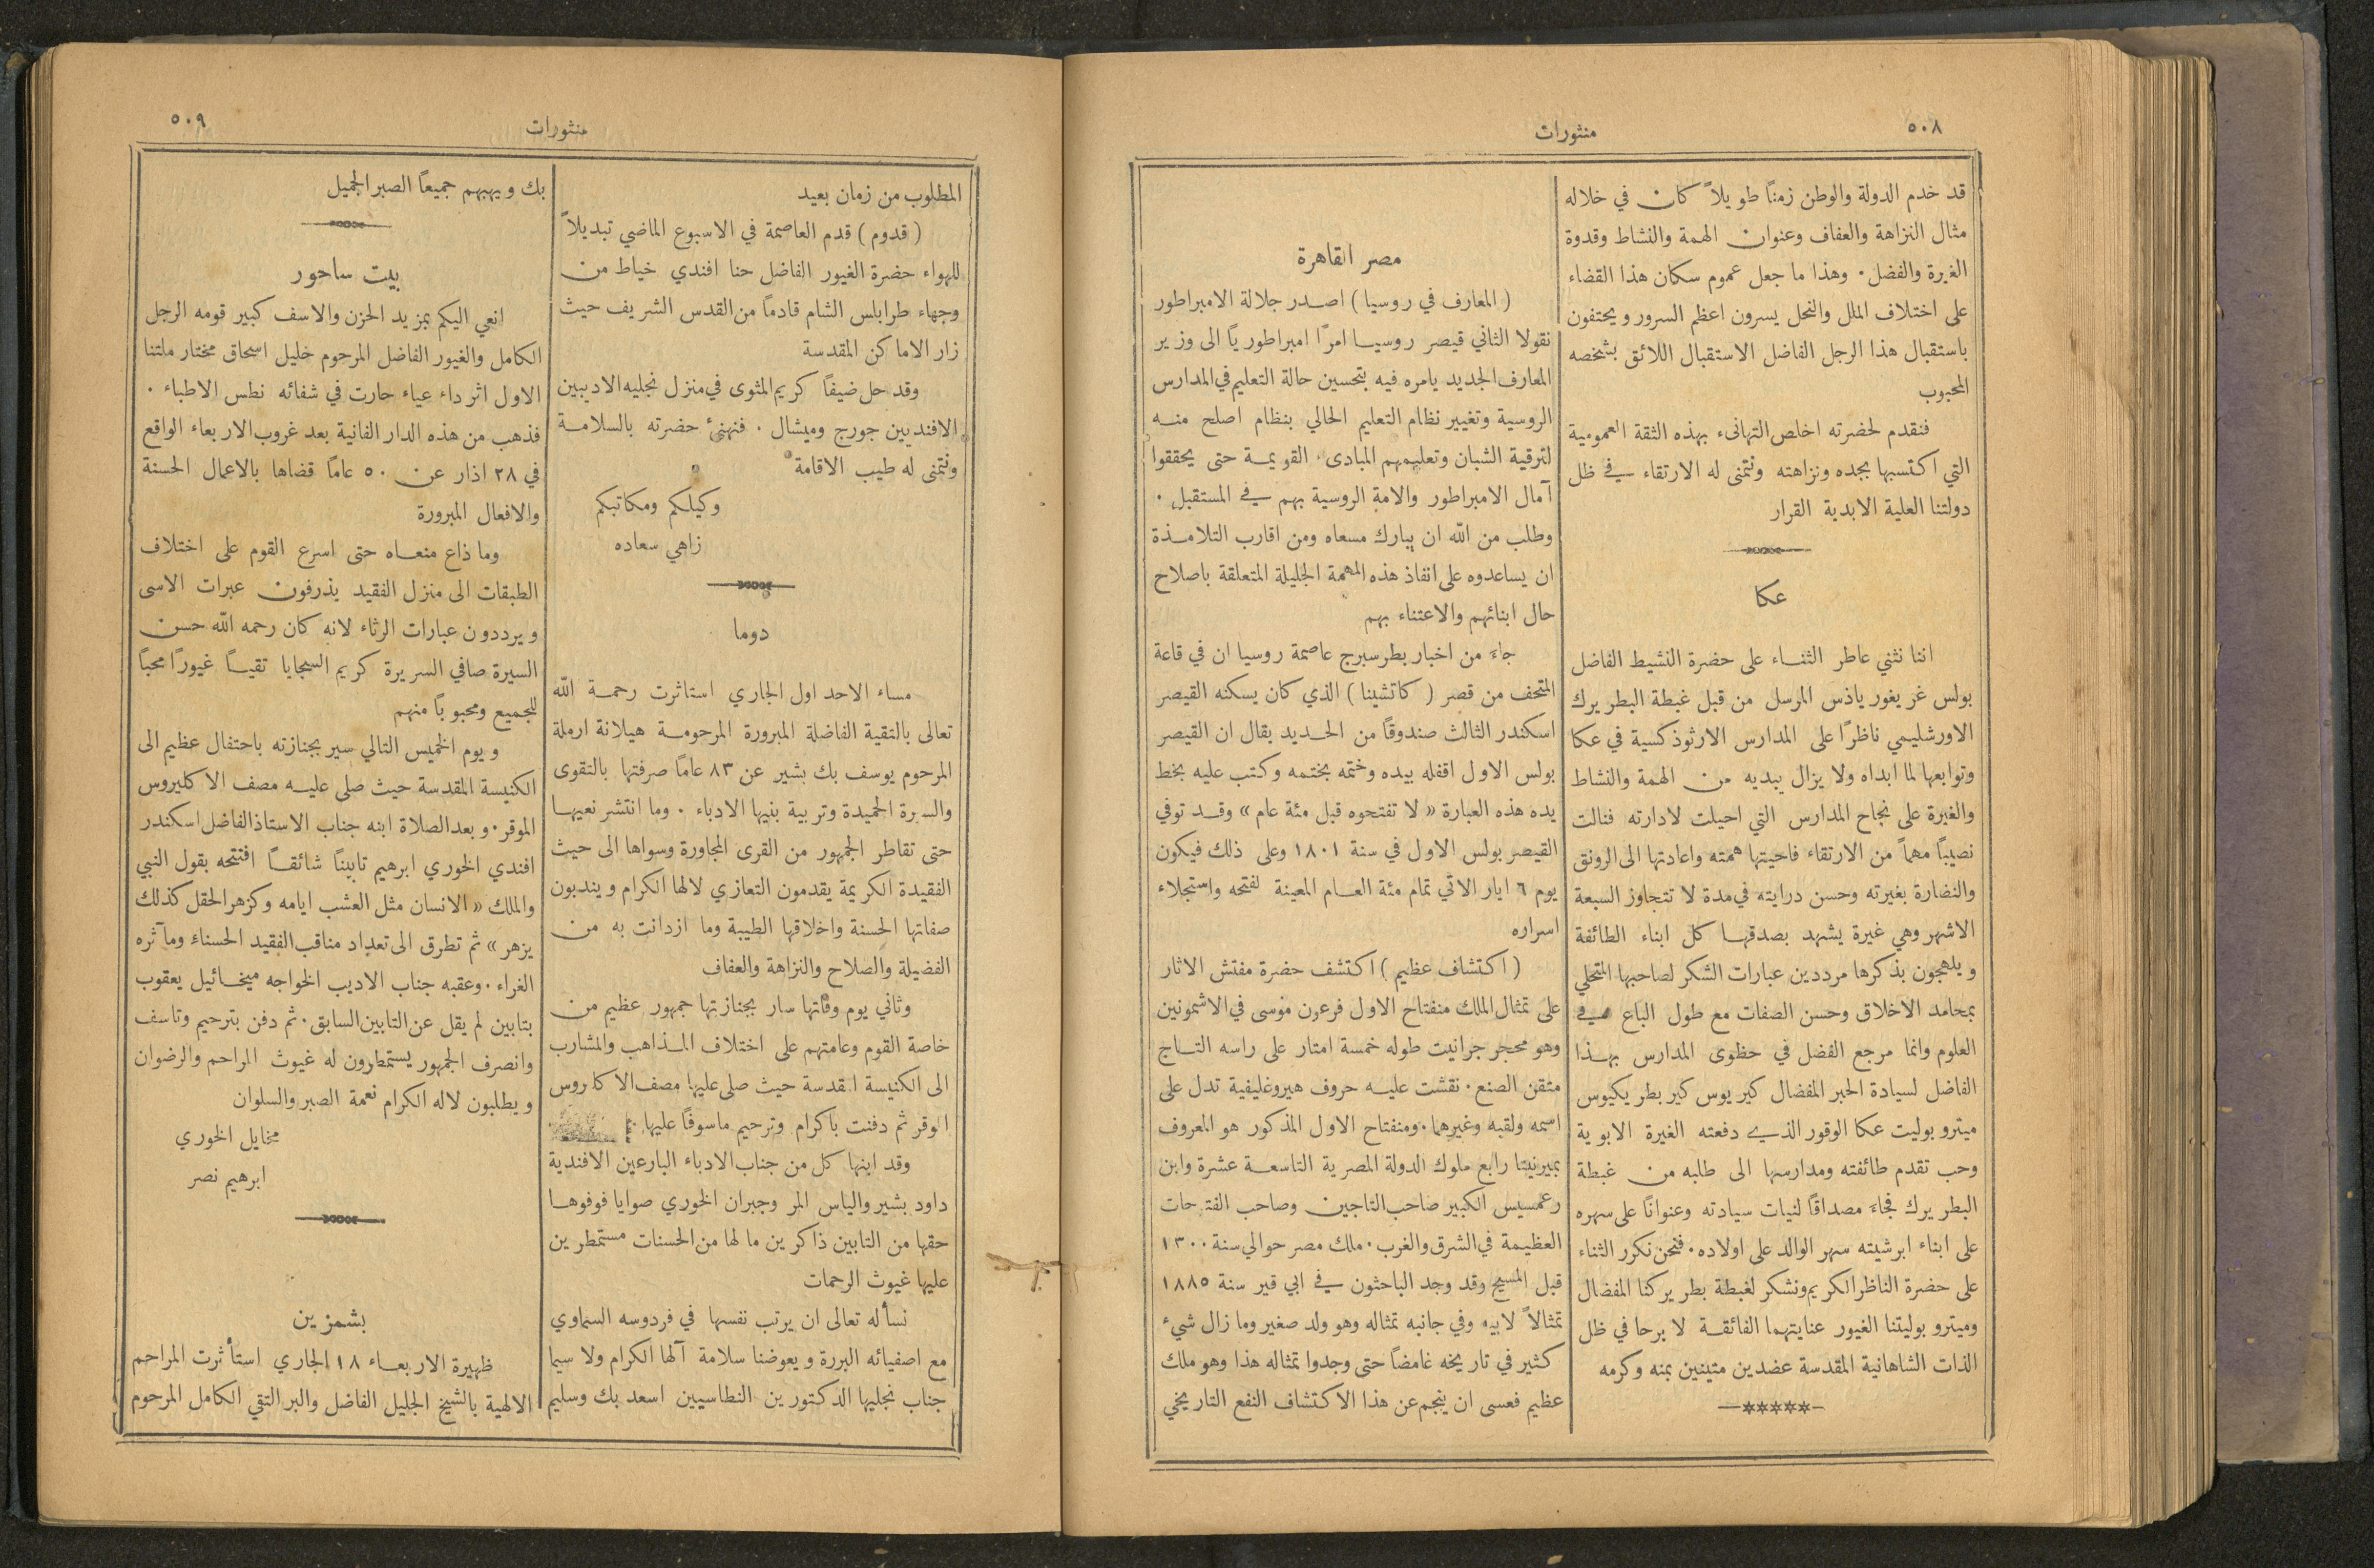 ٥٠٨
منثورات
قد خدم الدولة والوطن زمنًا طويلاً كان في خلاله
مثال النزاهة والعفاف وعنوان الهمة والنشاط وقدوة
الغيرة والفضل. وهذا ما جعل عموم سكان هذا القضاء
على اختلاف الملل والنحل يسرون اعظم السرور ويحتفون
باستقبال هذا الرجل الفاضل الاستقبال اللائق بشخصه
المحبوب
فنقدم لحضرته اخلص التهانىء بهذه الثقة العمومية
التي اكتسبها بجده ونزاهته ونتمنى له الارتقاء في ظل
دولتنا العلية الابدية القرار
عكا
اننا نثني عاطر الثناء على حضرة النشيط الفاضل
بولس غريغور ياذس المرسل من قبل غبطة البطريرك
الاورشليمي ناظرًا على المدارس الارثوذكسية في عكا
وتوابعها لما ابداه ولا يزال يبديه من الهمة والنشاط
والغيرة على نجاح المدارس التي احيلت لادارته فنالت
نصيبًا مهماً من الارتقاء فاحيتها همته واعادتها الى الرونق
والنضارة بغيرته وحسن درايته في مدة لا تتجاوز السبعة
الاشهر وهي غيرة يشهد بصدقها كل ابناء الطائفة
ويلهجون بذكرها مرددين عبارات الشكر لصاحبها المتحلي
بمحامد الاخلاق وحسن الصفات مع طول الباع في
العلوم وانما مرجع الفضل في حظوى المدارس بهذا
الفاضل لسيادة الحبر المفضال كيريوس كير بطريكيوس
ميتروبوليت عكا الوقور الذي دفعته الغيرة الابوية
وحب تقدم طائفته ومدارسها الى طلبه من غبطة
البطريرك فجاء مصداقًا لنيات سيادته وعنوانًا على سهره
على ابناء ابرشيته سهر الوالد على اولاده. فنحن نكرر الثناء
على حضرة الناظر الكريم ونشكر لغبطة بطريركنا المفضال
وميتروبوليتنا الغيور عنايتهما الفائقة لا برحا في ظل
الذات الشاهانية المقدسة عضدين متينين بمنه وكرمه
—*****—
مصر القاهرة
(المعارف في روسيا) اصدر جلالة الامبراطور
نقولا الثاني قيصر روسيا امرًا امبراطوريًا الى وزير
المعارف الجديد يامره فيه بتحسين حالة التعليم في المدارس
الروسية وتغيير نظام التعليم الحالي بنظام اصلح منه
لترقية الشبان وتعليمهم المبادىء القويمة حتى يحققوا
آمال الامبراطور والامة الروسية بهم في المستقبل.
وطلب من الله ان يبارك مسعاه ومن اقارب التلامذة
ان يساعدوه على انفاذ هذه المهمة الجليلة المتعلقة باصلاح
حال ابنائهم والاعتناء بهم
جاء من اخبار بطرسبرج عاصمة روسيا ان في قاعة
المتحف من قصر (كاتشينا) الذي كان يسكنه القيصر
اسكندر الثالث صندوقًا من الحديد يقال ان القيصر
بولس الاول اقفله بيده وختمه بختمه وكتب عليه بخط
يده هذه العبارة «لا تفتحوه قبل مئة عام» وقد توفي
القيصر بولس الاول في سنة ١٨٠١ وعلى ذلك فيكون
يوم ٦ ايار الاتي تمام مئة العام المعينة لفتحه واستجلاء
اسراره
(اكتشاف عظيم) اكتشف حضرة مفتش الاثار
على تمثال الملك منفتاح الاول فرعون موسى في الاشمونين
وهو محجر جرانيت طوله خمسة امتار على راسه التاج
متقن الصنع. نقشت عليه حروف هيروغليفية تدل على
اسمه ولقبه وغيرهما. ومنفتاح الاول المذكور هو المعروف
بميرنيتا رابع ملوك الدولة المصرية التاسعة عشرة وابن
رعمسيس الكبير صاحب التاجين وصاحب الفتوحات
العظيمة في الشرق والغرب. ملك مصر حوالي سنة ١٣٠٠
قبل المسيح وقد وجد الباحثون في ابي قير سنة ١٨٨٥
تمثالاً لابيه وفي جانبه تمثاله وهو ولد صغير وما زال شيء
كثير في تاريخه غامضاً حتى وجدوا تمثاله هذا وهو ملك
عظيم فعسى ان ينجم عن هذا الاكتشاف النفع التاريخي
منثورات
٥٠٩
المطلوب من زمان بعيد
(قدوم) قدم العاصمة في الاسبوع الماضي تبديلاً
للهواء حضرة الغيور الفاضل حنا افندي خياط من
وجهاء طرابلس الشام قادمًا من القدس الشريف حيث
زار الاماكن المقدسة
وقد حل ضيفًا كريم المثوى في منزل نجليه الاديبين
الافنديين جورج وميشال. فنهنئ حضرته بالسلامة
ونتمنى له طيب الاقامة
وكيلكم ومكاتبكم
زاهي سعاده
دوما
مساء الاحد اول الجاري استاثرت رحمة الله
تعالى بالتقية الفاضلة المبرورة المرحومة هيلانة ارملة
المرحوم يوسف بك بشير عن ٨٣ عامًا صرفتها بالتقوى
والسيرة الحميدة وتربية بنيها الادباء. وما انتشر نعيها
حتى تقاطر الجمهور من القرى المجاورة وسواها الى حيث
الفقيدة الكريمة يقدمون التعازي لالها الكرام ويندبون
صفاتها الحسنة واخلاقها الطيبة وما ازدانت به من
الفضيلة والصلاح والنزاهة والعفاف
وثاني يوم وفاتها سار بجنازتها جمهور عظيم من
خاصة القوم وعامتهم على اختلاف المذاهب والمشارب
الى الكنيسة المقدسة حيث صلى عليها مصف الاكليروس
الوقر ثم دفنت باكرام وترحيم ماسوفًا عليها
وقد ابنها كل من جناب الادباء البارعين الافندية
داود بشير والياس المر وجبران الخوري صوايا فوفوها
حقها من التابين ذاكرين ما لها من الحسنات مستمطرين
عليها غيوث الرحمات
نسأله تعالى ان يرتب نفسها في فردوسه السماوي
مع اصفيائه البررة ويعوضنا سلامة آلها الكرام ولا سيما
جناب نجليها الدكتورين النطاسيين اسعد بك وسليم
بك ويهبهم جميعاً الصبر الجميل
بيت ساحور
انعي اليكم بمزيد الحزن والاسف كبير قومه الرجل
الكامل والغيور الفاضل المرحوم خليل اسحاق مختار ملتنا
الاول اثر داء عياء حارت في شفائه نطس الاطباء.
فذهب من هذه الدار الفانية بعد غروب الاربعاء الواقع
في ٢٨ اذار عن ٥٠ عامًا قضاها بالاعمال الحسنة
والافعال المبرورة
وما ذاع منعاه حتى اسرع القوم على اختلاف
الطبقات الى منزل الفقيد يذرفون عبرات الاسى
ويرددون عبارات الرثاء لانه كان رحمه الله حسن
السيرة صافي السريرة كريم السجايا تقيًا غيورًا محبًا
للجميع ومحبوبًا منهم
ويوم الخميس التالي سير بجنازته باحتفال عظيم الى
الكنيسة المقدسة حيث صلى عليه مصف الاكليروس
الموقر. وبعد الصلاة ابنه جناب الاستاذ الفاضل اسكندر
افندي الخوري ابرهيم تابينًا شائقًا افتتحه بقول النبي
والملك «الانسان مثل العشب ايامه وكزهر الحقل كذلك
يزهر» ثم تطرق الى تعداد مناقب الفقيد الحسناء ومآثره
الغراء. وعقبه جناب الاديب الخواجه ميخائيل يعقوب
بتابين لم يقل عن التابين السابق. ثم دفن بترحيم وتاسف
وانصرف الجمهور يستمطرون له غيوث المراحم والرضوان
ويطلبون لاله الكرام نعمة الصبر والسلوان
مخايل الخوري
ابرهيم نصر
بشمزين
ظهيرة الاربعاء ١٨ الجاري استأثرت المراحم
الالهية بالشيخ الجليل الفاضل والبر التقي الكامل المرحوم